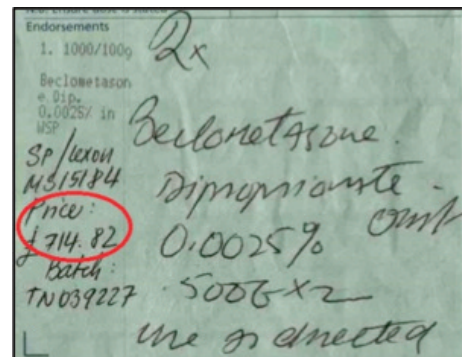 N.B. Ensure dose is stated
Endorsements
1. 1000/100g
Beclometason
e Dip.
0.0025% in
WSP
SP/Lexon
MS15184
Price:
£714.82
Batch:
TN039227
2x
Beclometasone.
Dipropionate.
0.0025% oint
500G x 2
use as directed